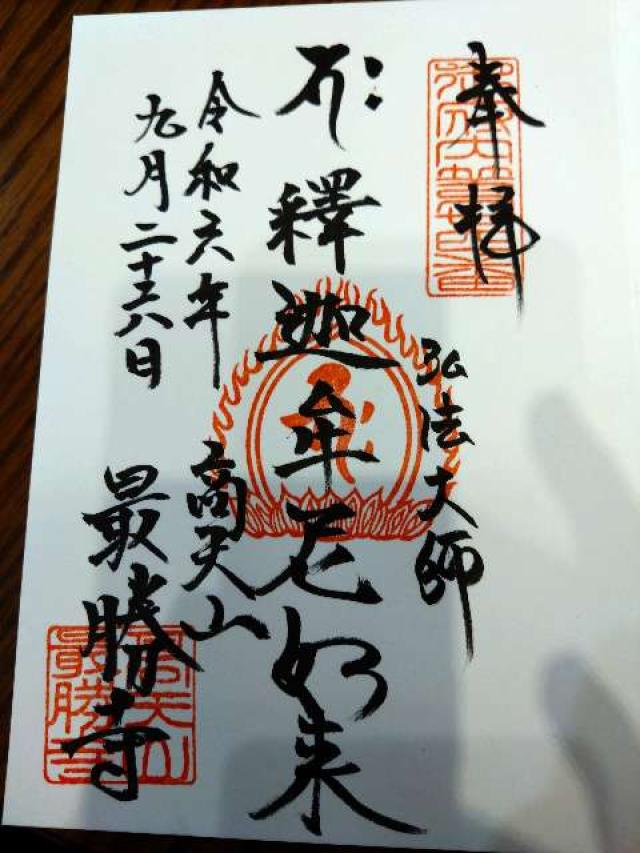 奉拝
弘法大師
釋迦牟尼如来
令和六年
九月二十六日
高天山
最勝寺
高天山
最勝寺